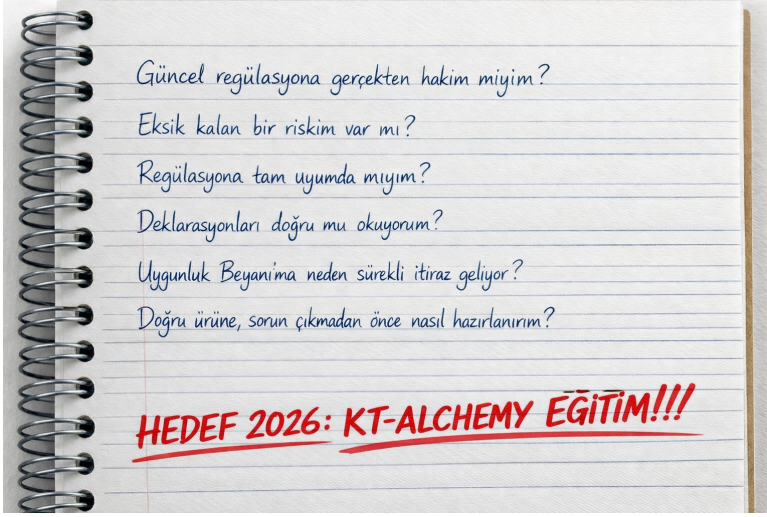 Güncel regülasyona gerçekten hakim miyim?
Eksik kalan bir riskim var mı?
Regülasyona tam uyumda mıyım?
Deklarasyonları doğru mu okuyorum?
Uygunluk Beyanı'ma neden sürekli itiraz geliyor?
Doğru ürüne, sorun çıkmadan önce nasıl hazırlanırım?
HEDEF 2026: KT-ALCHEMY EĞİTİM!!!